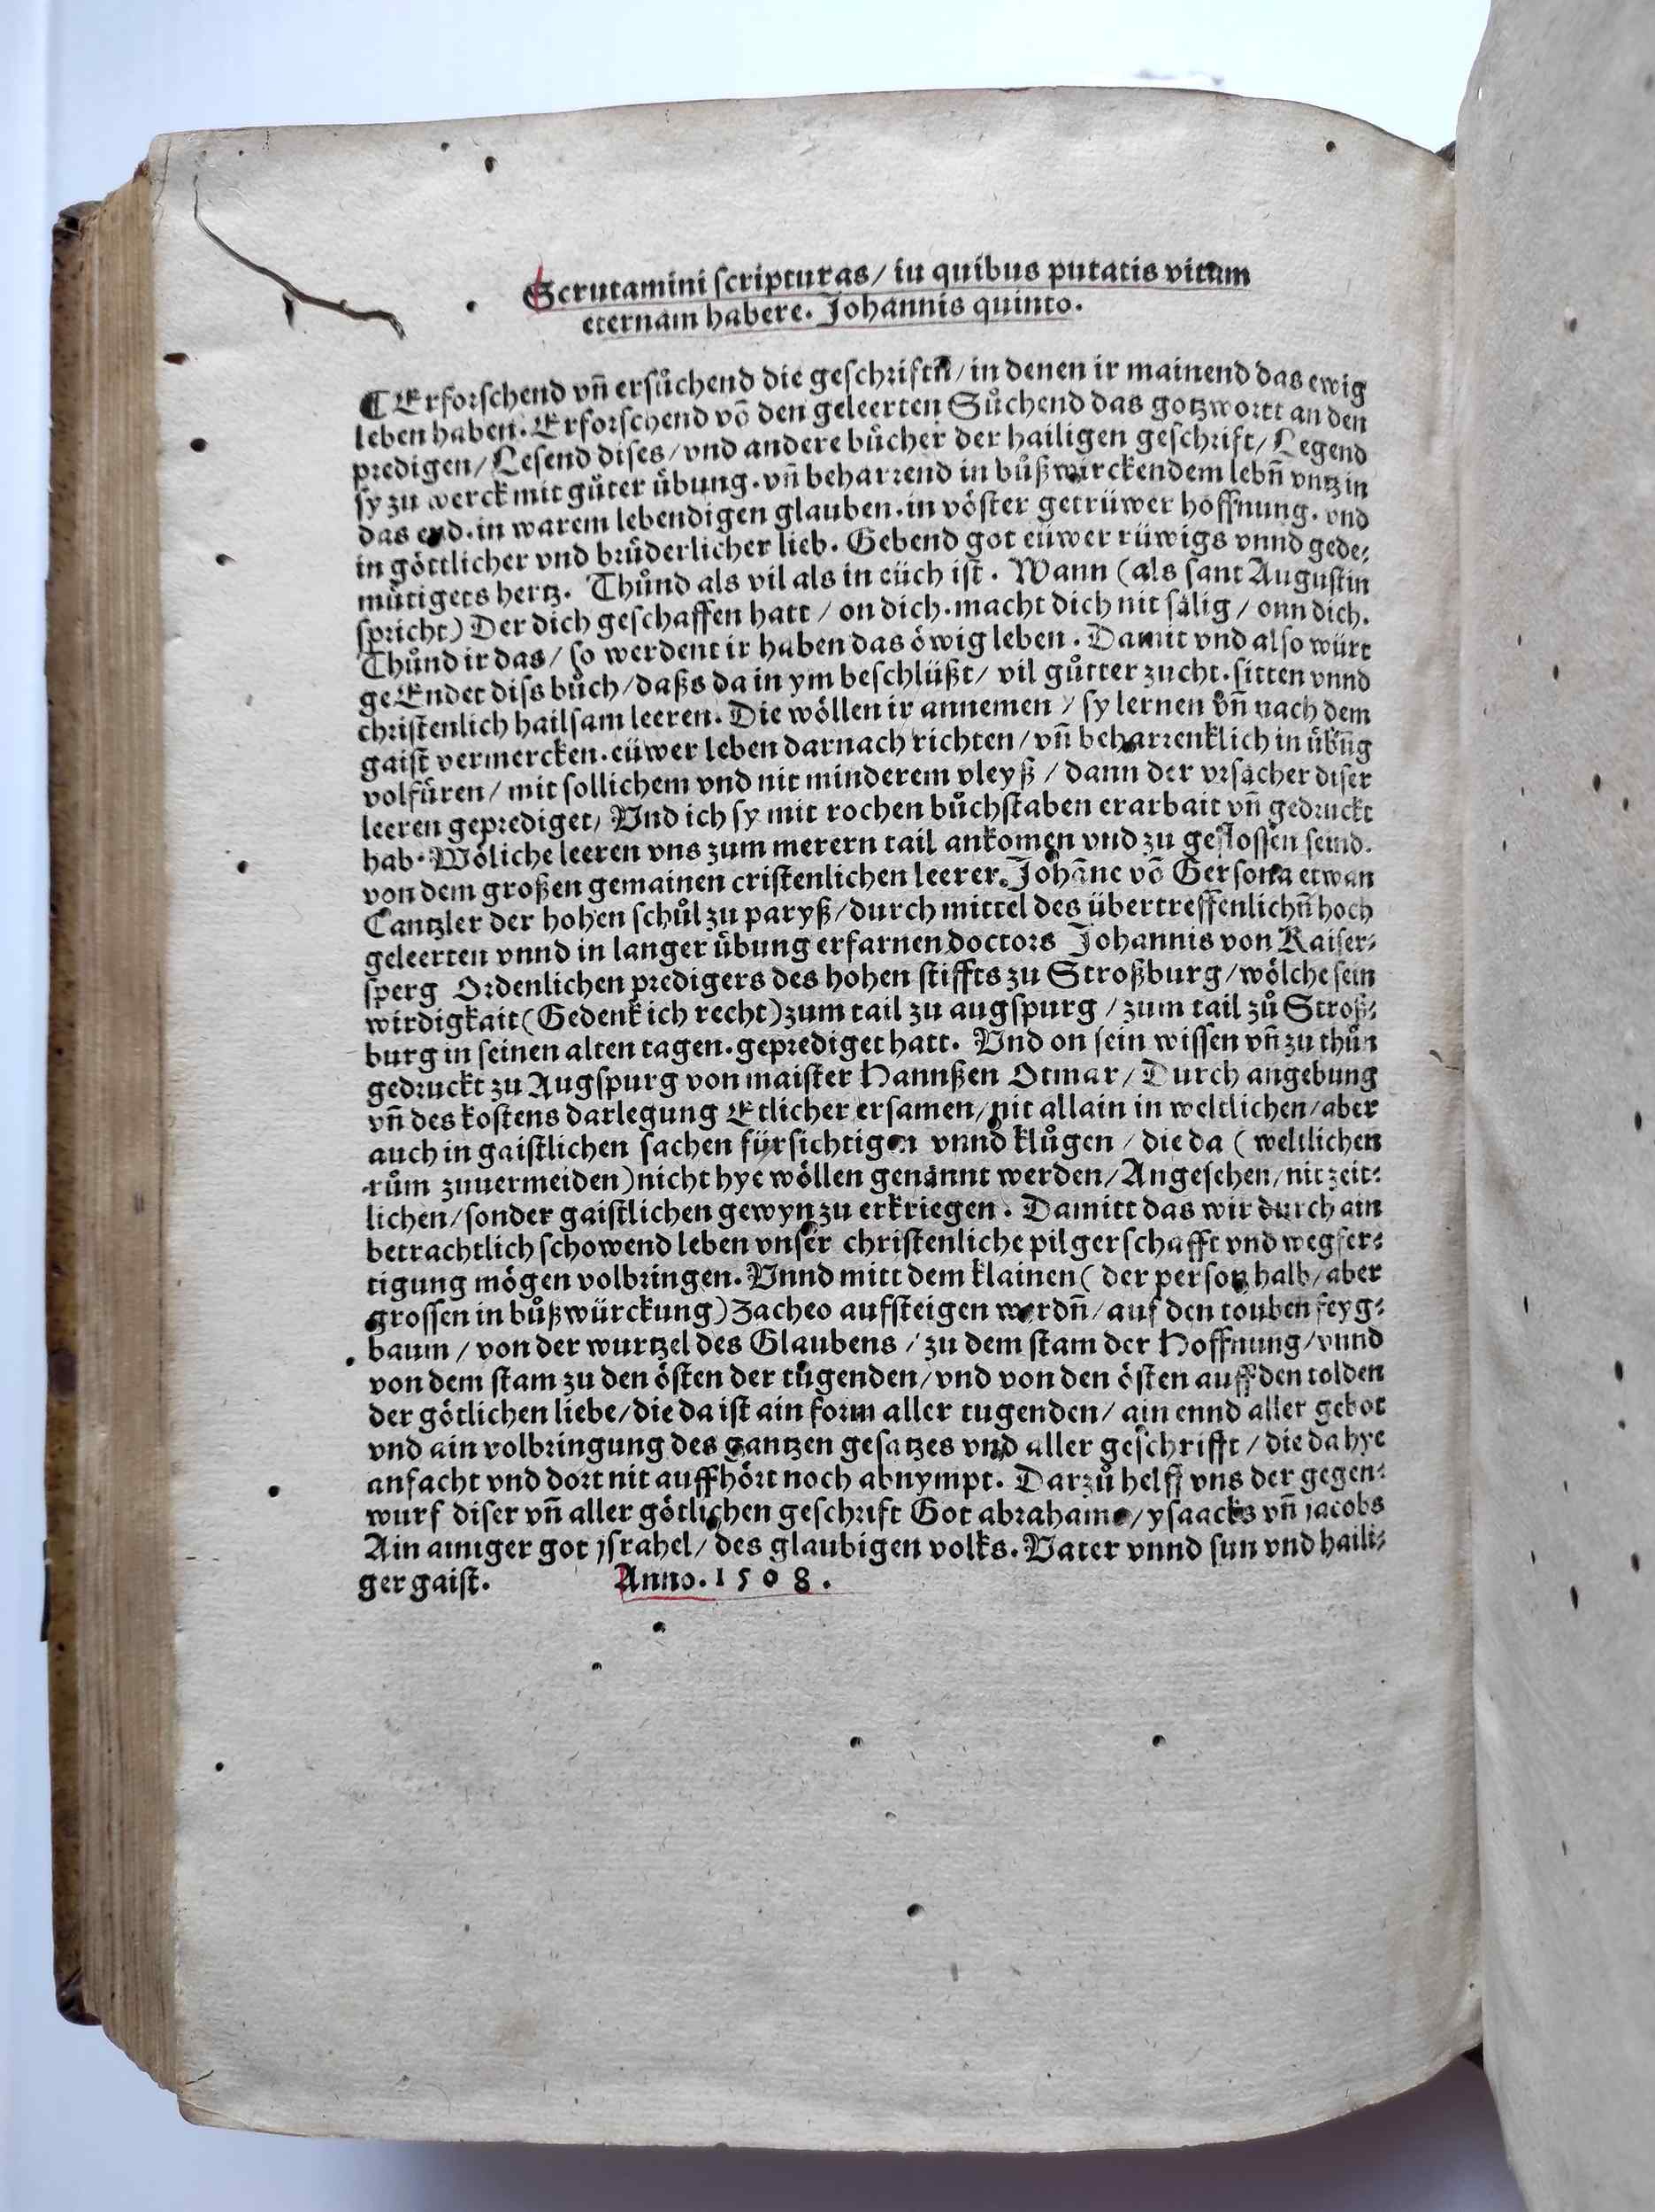 Scrutamini scripturas/ in quibus putatis vitam
eternam habere. Johannis quinto.
¶ Erforschend vñ ersůchend die geschriftñ/ in denen ir mainend das ewig
leben haben. Erforschend võ den geleerten Sůchend das gotzwortt an den
predigen/ Lesend dises/ vnd andere bůcher der hailigen geschrift/ Legend
sy zu werck mit gůter übung. vñ beharrend in bůßwirckendem lebñ vntz in
das end. in warem lebendigen glauben. in vöster getrüwer hoffnung. vnd
in göttlicher vnd brüderlicher lieb. Gebend got eüwer rüwigs vnnd gede⸗
mütigets hertz. Thůnd als vil als in eüch ist. Wann (als sant Augustin
spricht) Der dich geschaffen hatt / on dich. macht dich nit sälig / onn dich.
Thůnd ir das/ so werdent ir haben das öwig leben. Damit vnd also würt
geEndet diss bůch/ daßs da in ym beschlüßt/ vil gůtter zucht. sitten vnnd
christenlich hailsam leeren. Die wöllen ir annemen / sy lernen vñ nach dem
gaist vermercken. eüwer leben darnach richten/ vñ beharrenklich in übũg
volfüren/ mit sollichem vnd nit minderem vleyß / dann der vrsacher diser
leeren geprediget/ Vnd ich sy mit rochen bůchstaben erarbait vñ gedruckt
hab. Wöliche leeren vns zum merern tail ankomen vnd zu geflossen seind.
von dem großen gemainen cristenlichen leerer. Johãne võ Gersona etwan
Cantzler der hohen schůl zu paryß/ durch mittel des übertreffenlichñ hoch
geleerten vnnd in langer übung erfarnen doctors Johannis von Kaiser⸗
sperg Ordenlichen predigers des hohen stiffts zu Stroßburg/ wölche sein
wirdigkait (Gedenk ich recht) zum tail zu augspurg / zum tail zů Stroß⸗
burg in seinen alten tagen. geprediget hatt. Vnd on sein wissen vñ zu thůn
gedruckt zu Augspurg von maister Hannßen Otmar/ Durch angebung
vñ des kostens darlegung Etlicher ersamen/ nit allain in weltlichen/ aber
auch in gaistlichen sachen fürsichtigen vnnd klůgen / die da ( weltlichen
rům zuuermeiden) nicht hye wöllen genannt werden/ Angesehen/ nit zeit⸗
lichen/ sonder gaistlichen gewyn zu erkriegen. Damitt das wir durch ain
betrachtlich schowend leben vnser christenliche pilgerschafft vnd wegfer⸗
tigung mögen volbringen. Vnnd mitt dem klainen ( der person halb/ aber
grossen in bůßwürckung) Zacheo aufsteigen werdñ/ auf den touben feyg⸗
baum / von der wurtzel des Glaubens / zu dem stam der Hoffnung/ vnnd
von dem stam zu den östen der tůgenden/ vnd von den östen auff den tolden
der götlichen liebe/ die da ist ain form aller tugenden/ ain ennd aller gebot
vnd ain volbringung des gantzen gesatzes vnd aller geschrifft / die da hye
anfacht vnd dort nit auffhört noch abnympt. Darzů helff vns der gegen⸗
wurf diser vñ aller götlichen geschrift Got abrahams/ ysaacks vñ jacobs
Ain ainiger got jsrahel/ des glaubigen volks. Vater vnnd sun vnd haili⸗
ger gaist. Anno. 1508.